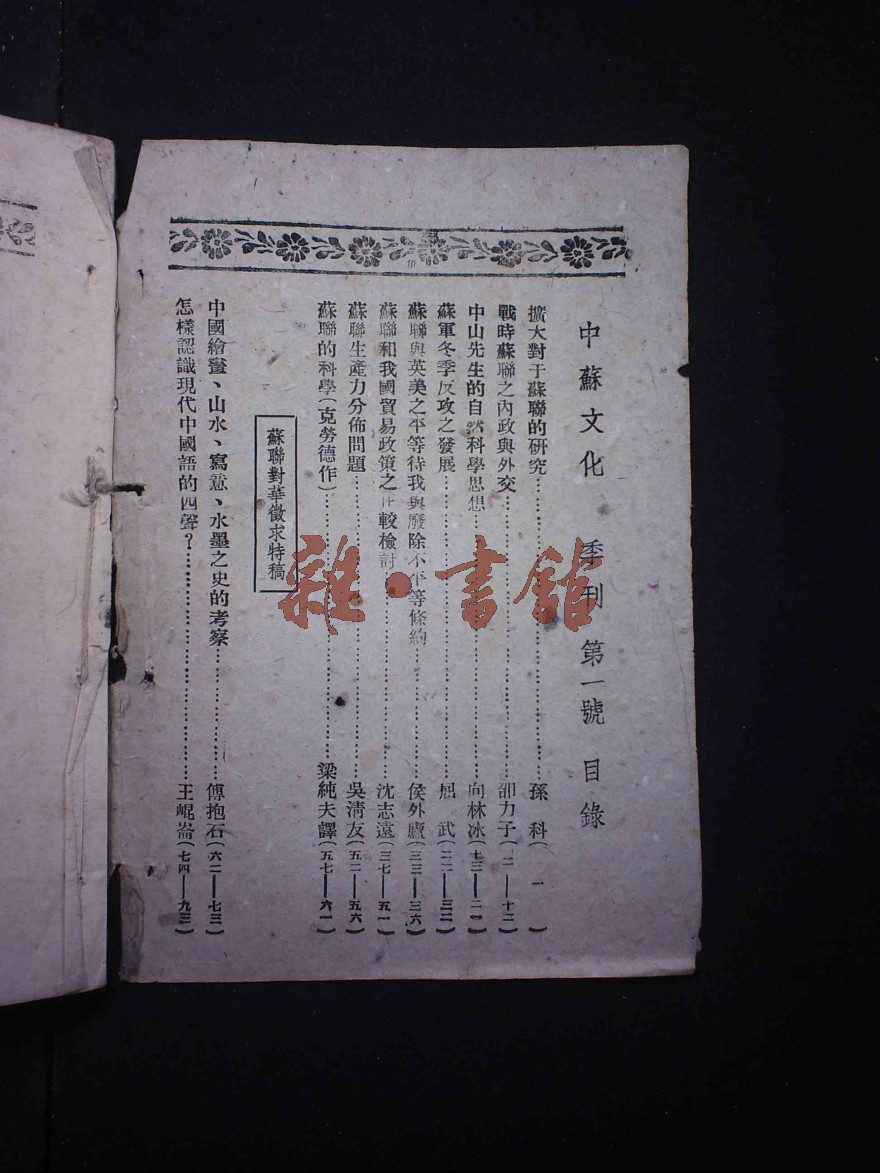 中蘇文化 季刊 第一號 目錄
擴大對于蘇聯的研究……孫科(一)
戰時蘇聯之內政與外交……邵力子(二——十二)
中山先生的自然科學思想……向林冰(十三——二一)
蘇軍冬季反攻之發展……屈武(二二——三二)
蘇聯與英美之平等待我與廢除不平等條約……侯外廬(三三——三六)
蘇聯和我國貿易政策之比較檢討……沈志遠(三七——五一)
蘇聯生產力分佈問題……吳清友(五二——五六)
蘇聯的科學(克勞德作)……梁純夫譯(五七——六一)
蘇聯對華徵求特稿
中國繪畫、山水、寫意、水墨之史的考察……傅抱石(六二——七三)
怎樣認識現代中國語的四聲?……王崐崙(七四——九三)
雜·書館